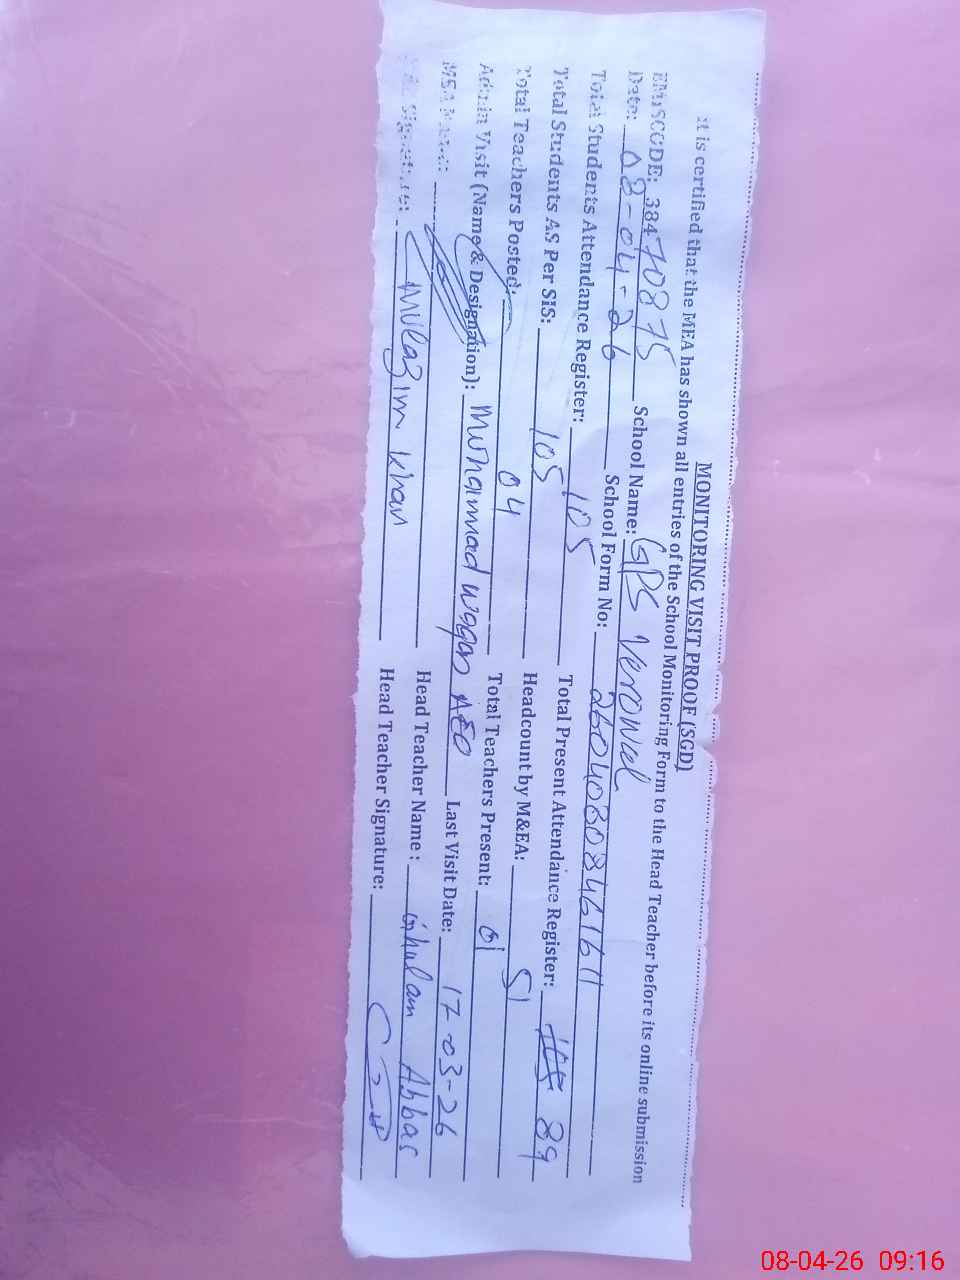 MONITORING VISIT PROOF (SGD)
it is certified that the MEA has shown all entries of the School Monitoring Form to the Head Teacher before its online submission
EMISCODE: 38470875 School Name: GPS Verowal
Date: 08-04-26 School Form No: 26040803461611
Total Students Attendance Register: 105 Total Present Attendance Register: 89
Total Students AS Per SIS: 105 Headcount by M&EA: 51
Total Teachers Posted: 04 Total Teachers Present: 01
Admin Visit (Name & Designation): Muhammad Waqas AEO Last Visit Date: 17-03-26
Mulazim Khan Head Teacher Name: Ghulam Abbas
Signature: Head Teacher Signature:
08-04-26 09:16